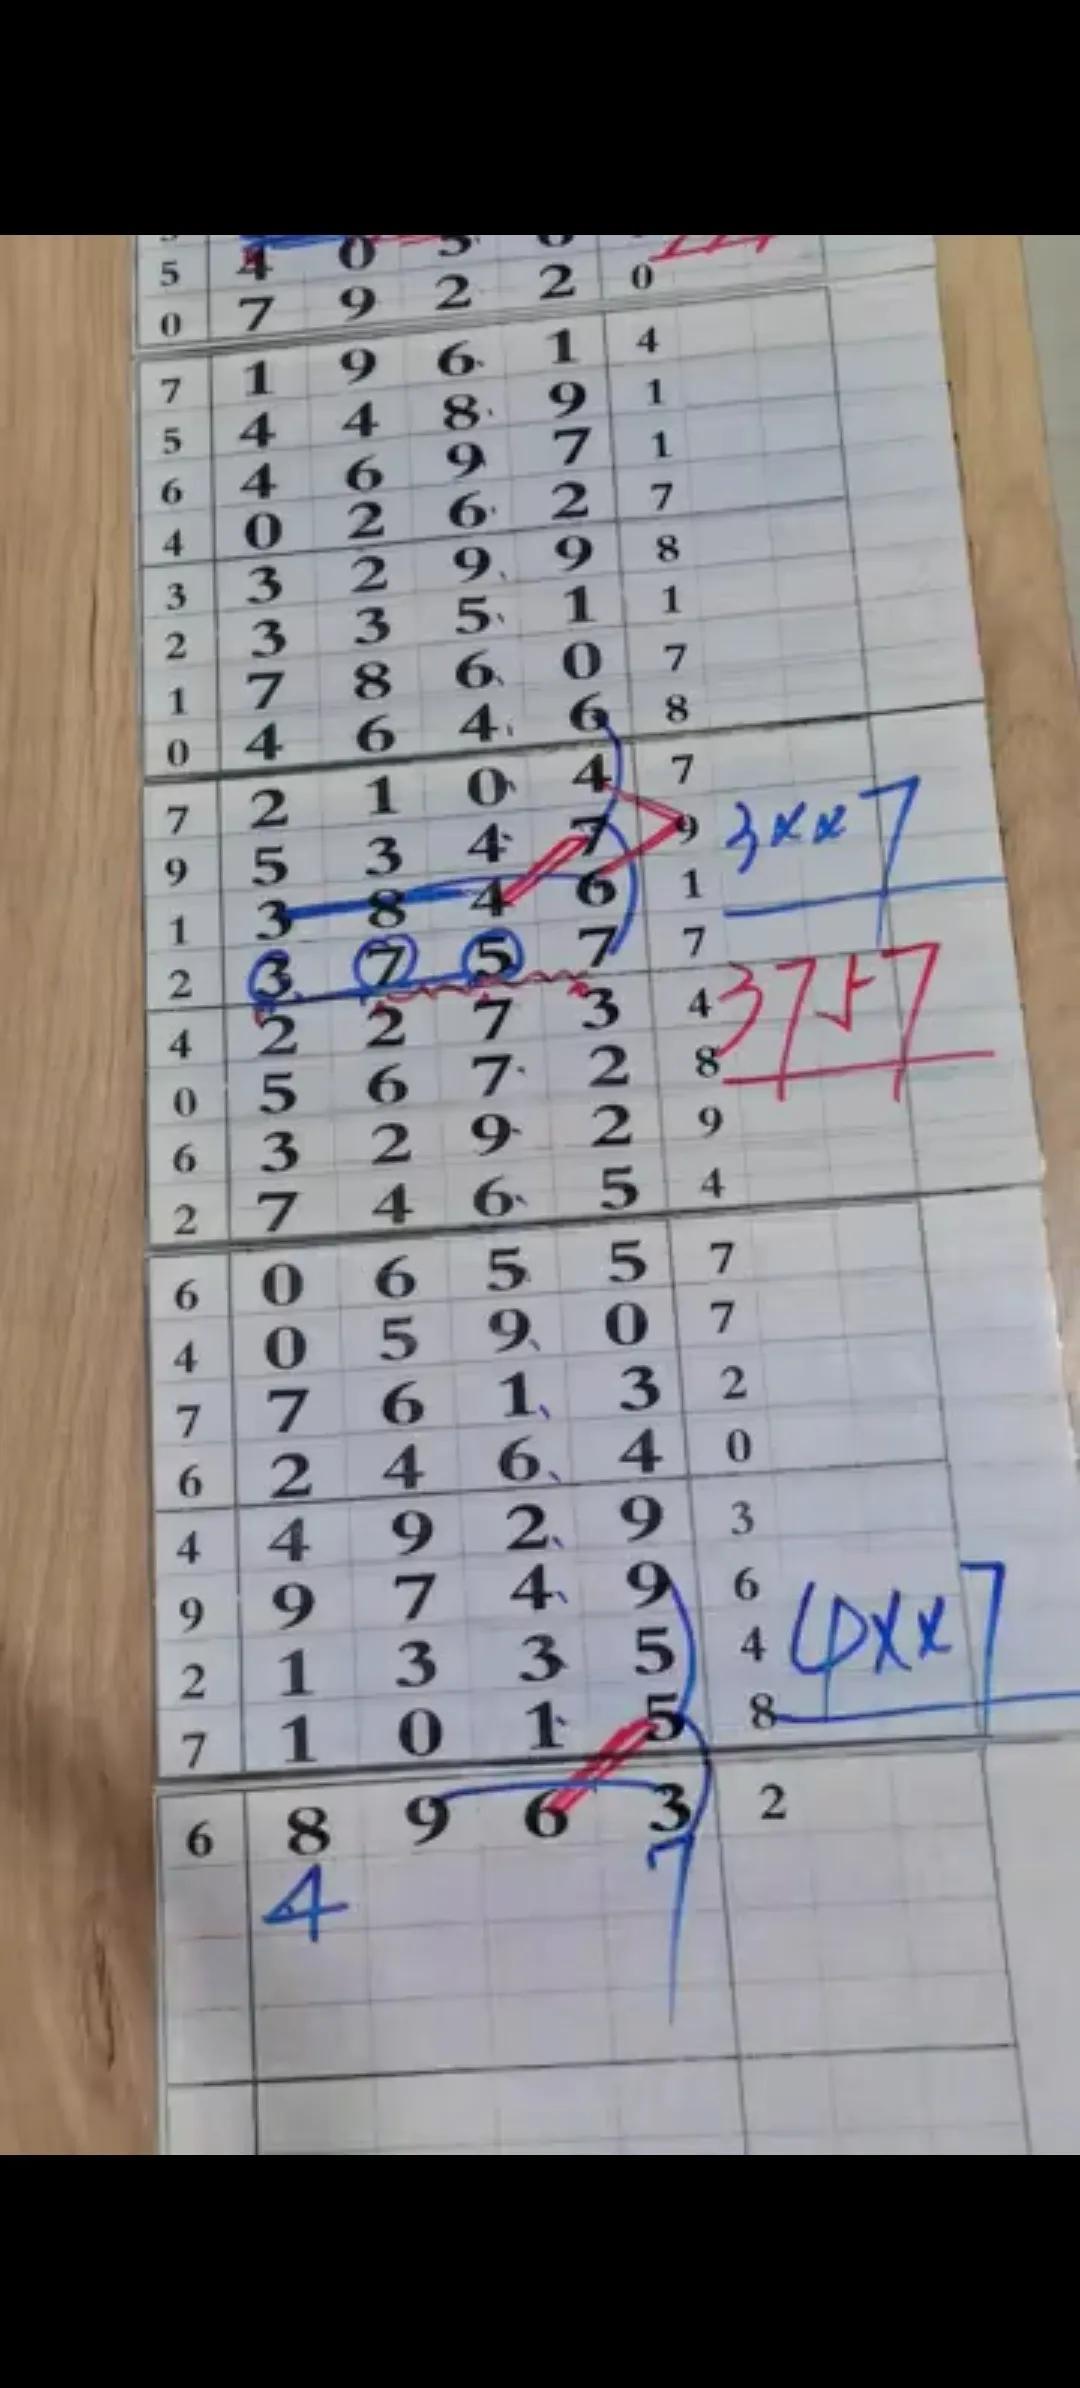 5 4 0 3 0
0 7 9 2 2 0
7 1 9 6 1 4
5 4 4 8 9 1
6 4 6 9 7 1
4 0 2 6 2 7
3 3 2 9 9 8
2 3 3 5 1 1
1 7 8 6 0 7
0 4 6 4 6 8
7 2 1 0 4 7
9 5 3 4 7 9 3xx7
1 3 8 4 6 1
2 3 7 5 7 7
4 2 2 7 3 4 3757
0 5 6 7 2 8
6 3 2 9 2 9
2 7 4 6 5 4
6 0 6 5 5 7
4 0 5 9 0 7
7 7 6 1 3 2
6 2 4 6 4 0
4 4 9 2 9 3
9 9 7 4 9 6
2 1 3 3 5 4 4xx7
7 1 0 1 5 8
6 8 9 6 3 2
4 7